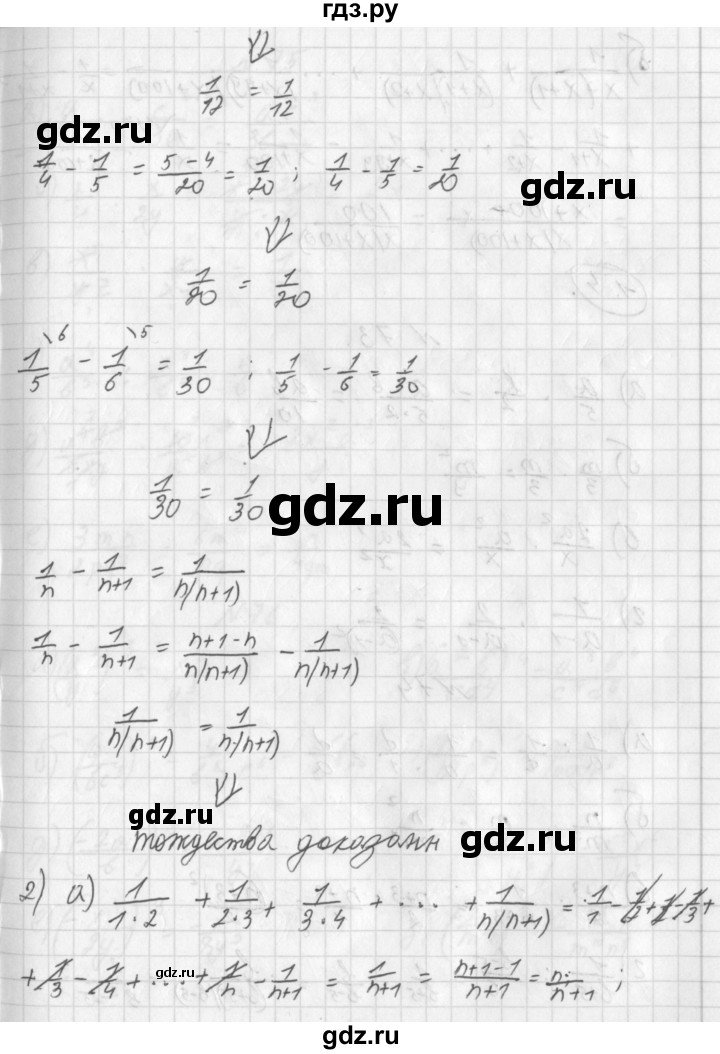 гдз.ру
⇓
1/12 = 1/12
gdz.ru
1/4 - 1/5 = (5-4)/20 = 1/20 ; 1/4 - 1/5 = 1/20
gdz.ru
⇓
1/20 = 1/20
1/5 \6 - 1/6 \5 = 1/30 ; 1/5 - 1/6 = 1/30
⇓
1/30 = 1/30
gdz.ru
1/n - 1/(n+1) = 1/(n(n+1))
1/n - 1/(n+1) = (n+1-n)/(n(n+1)) - 1/(n(n+1))
1/(n(n+1)) = 1/(n(n+1))
⇓
gdz.ru
тождества доказаны
gdz.ru
2) а) 1/(1·2) + 1/(2·3) + 1/(3·4) + ... + 1/(n(n+1)) = 1/1 - 1/2 + 1/2 - 1/3 +
+ 1/3 - 1/4 + ... + 1/n - 1/(n+1) = 1/(n+1) = (n+1-1)/(n+1) = n/(n+1) ;
gdz.ru
gdz.ru
gdz.ru